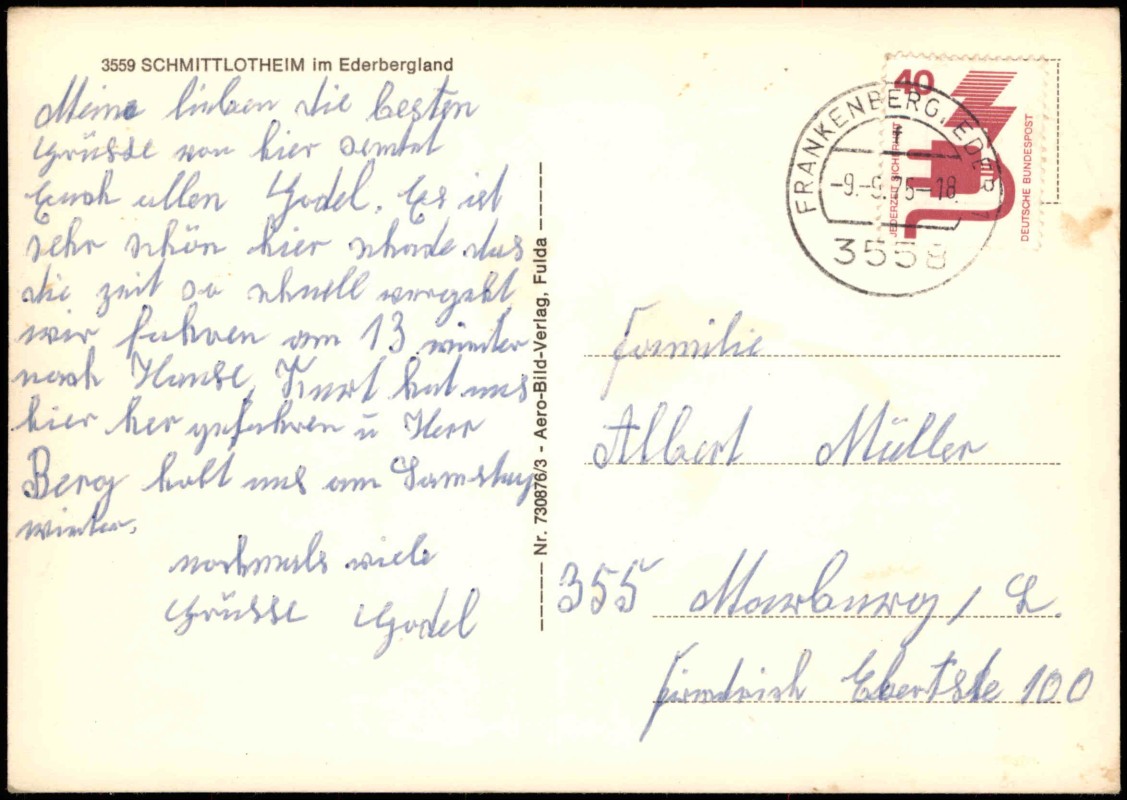 3559 SCHMITTLOTHEIM im Ederbergland
Meine lieben die besten
Grüsse von hier sentet
Euch allen Godel. Es ist
sehr schön hier schade das
die zeit so schnell vergeht
wir fahren am 13 wieder
nach Hause, Kurt hat uns
hier her gefahren u Herr
Berg holt uns am Samstag
wieder.
nochmals viele
Grüsse Godel
Nr. 730876/3 - Aero-Bild-Verlag, Fulda
40
JEDERZEIT SICHERHEIT
DEUTSCHE BUNDESPOST
FRANKENBERG, EDER
-9.-9.75-18
3558
Familie
Albert Müller
355 Marburg / L.
Friedrich Ebertstr 100